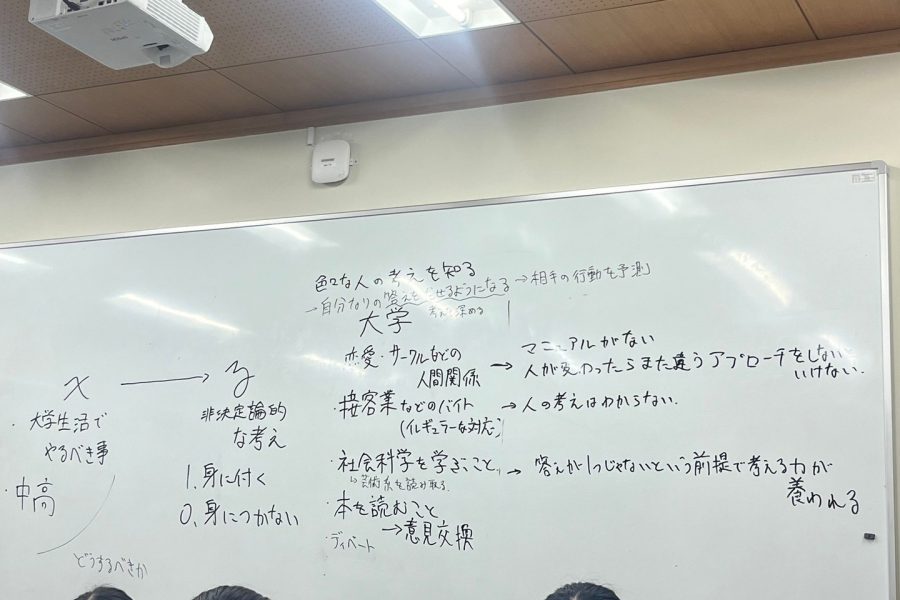 色々な人の考えを知る
→自分なりの答えを出せるようになる→相手の行動を予測
考え深める
大学
恋愛・サークルなどの
人間関係
→マニュアルがない
人が変わったらまた違うアプローチをしない
いけない.
・接客業などのバイト
(イレギュラーな対応)
→人の考えはわからない.
・社会科学を学ぶこと
→芸術系を読み取る.
→答えが1つじゃないという前提で考える力が
養われる
・本を読むこと
・ディベート
→意見交換
x → y
・大学生活で
やるべき事
・中高
どうするべきか
非決定論的
な考え
1.身に付く
0.身につかない